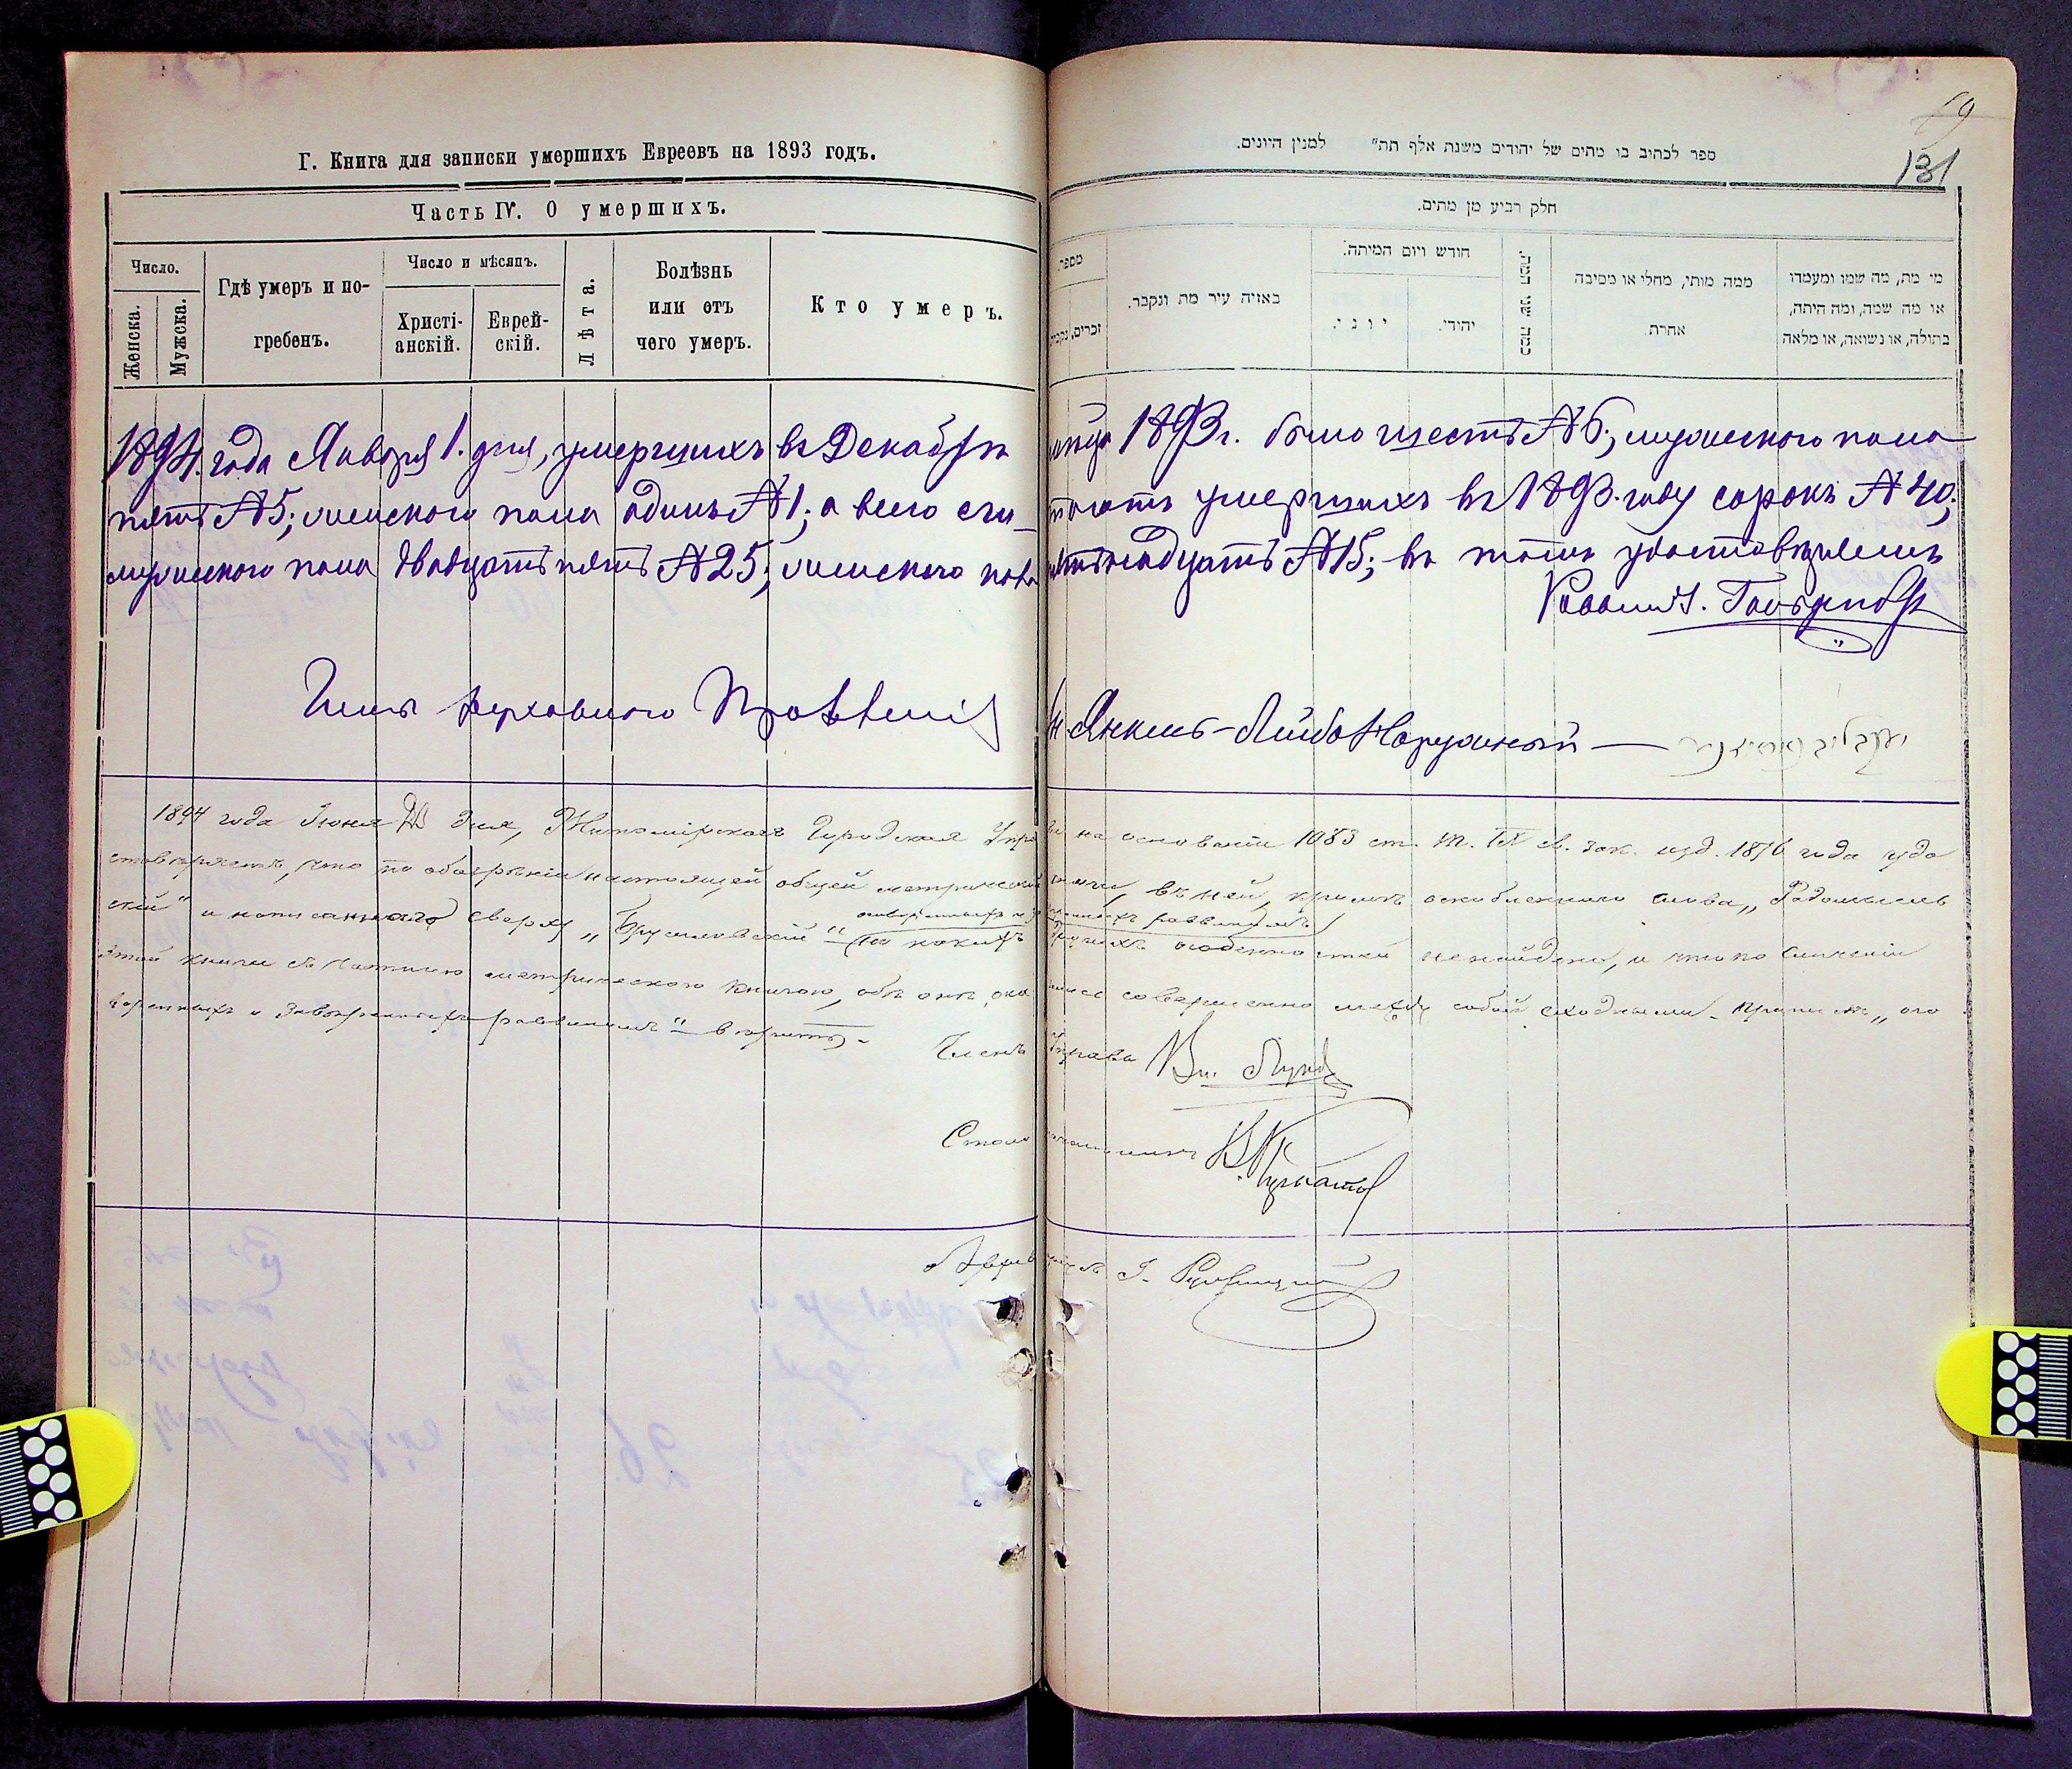 Г. Книга для записки умершихъ Евреевъ на 1893 годъ.
Часть IV. О умершихъ.
Число.
Женска.
Мужска.
Гдѣ умеръ и погребенъ.
Число и мѣсяцъ.
Христіанскій.
Еврейскій.
Лѣта.
Болѣзнь или отъ чего умеръ.
Кто умеръ.
131
ספר לכתוב בו מתים של יהודים משנת אלף תת״ למנין היונים.
חלק רביע מן מתים.
מספר
זכרים, נקבות
באזיה עיר מת ונקבר.
חודש ויום המיתה.
יוני.
יהודי.
כמה שני המת.
ממה מותו, מחלי או מסיבה אחרת.
מי מת, מה שמו ומעמדו
או מה שמה, ומה היתה,
בתולה, או נשואה, או מלאה
1894. года Января 1. дня, умершихъ въ Декабрѣ мѣсяцѣ 1893 г. было шесть №6; мужескаго пола
пять №5; женскаго пола одинъ №1; а всего считаютъ умершихъ въ 1893. году сорокъ №40;
мужескаго пола двадцать пять №25; женскаго пола пятнадцать №15; въ томъ удостовѣряемъ
Раввинъ
Членъ духовнаго Правленія Янкель-Лейба
1894 года Іюня 20 дня, Житомірская Городская Управа на основаніи 1083 ст. т. IX св. зак. изд. 1876 года удо
стовѣряетъ, что по обозрѣніи настоящей общей метрической книги, въ ней, кромѣ оскобленнаго слова „Радомысль
скій" и написаннаго сверху „Брусиловскій" (оговоренныхъ и завѣренныхъ раввиномъ) никакихъ другихъ особенностей не найдено, и что по сличеніи
этой книги съ частною метрическою книгою, обѣ онѣ оказались совершенно между собой сходными. Приписка „ого
воренныхъ и завѣренныхъ раввиномъ" вѣрить.
Членъ Управы
Столоначальникъ
Архиваріусъ